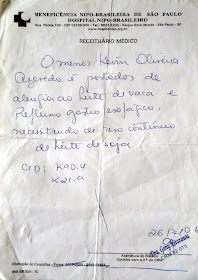 BENEFICÊNCIA NIPO-BRASILEIRA DE SÃO PAULO
HOSPITAL NIPO-BRASILEIRO
RECEITUÁRIO MÉDICO
O menor Kevin Oliveira
Azevedo é portador de
alergia ao leite de vaca e
Refluxo gastro esofágico,
necessitando de uso contínuo
de leite de soja
CID: K90.4
K21.9
26/7/0
Assinatura do Médico
Carimbo com o nº do CRM